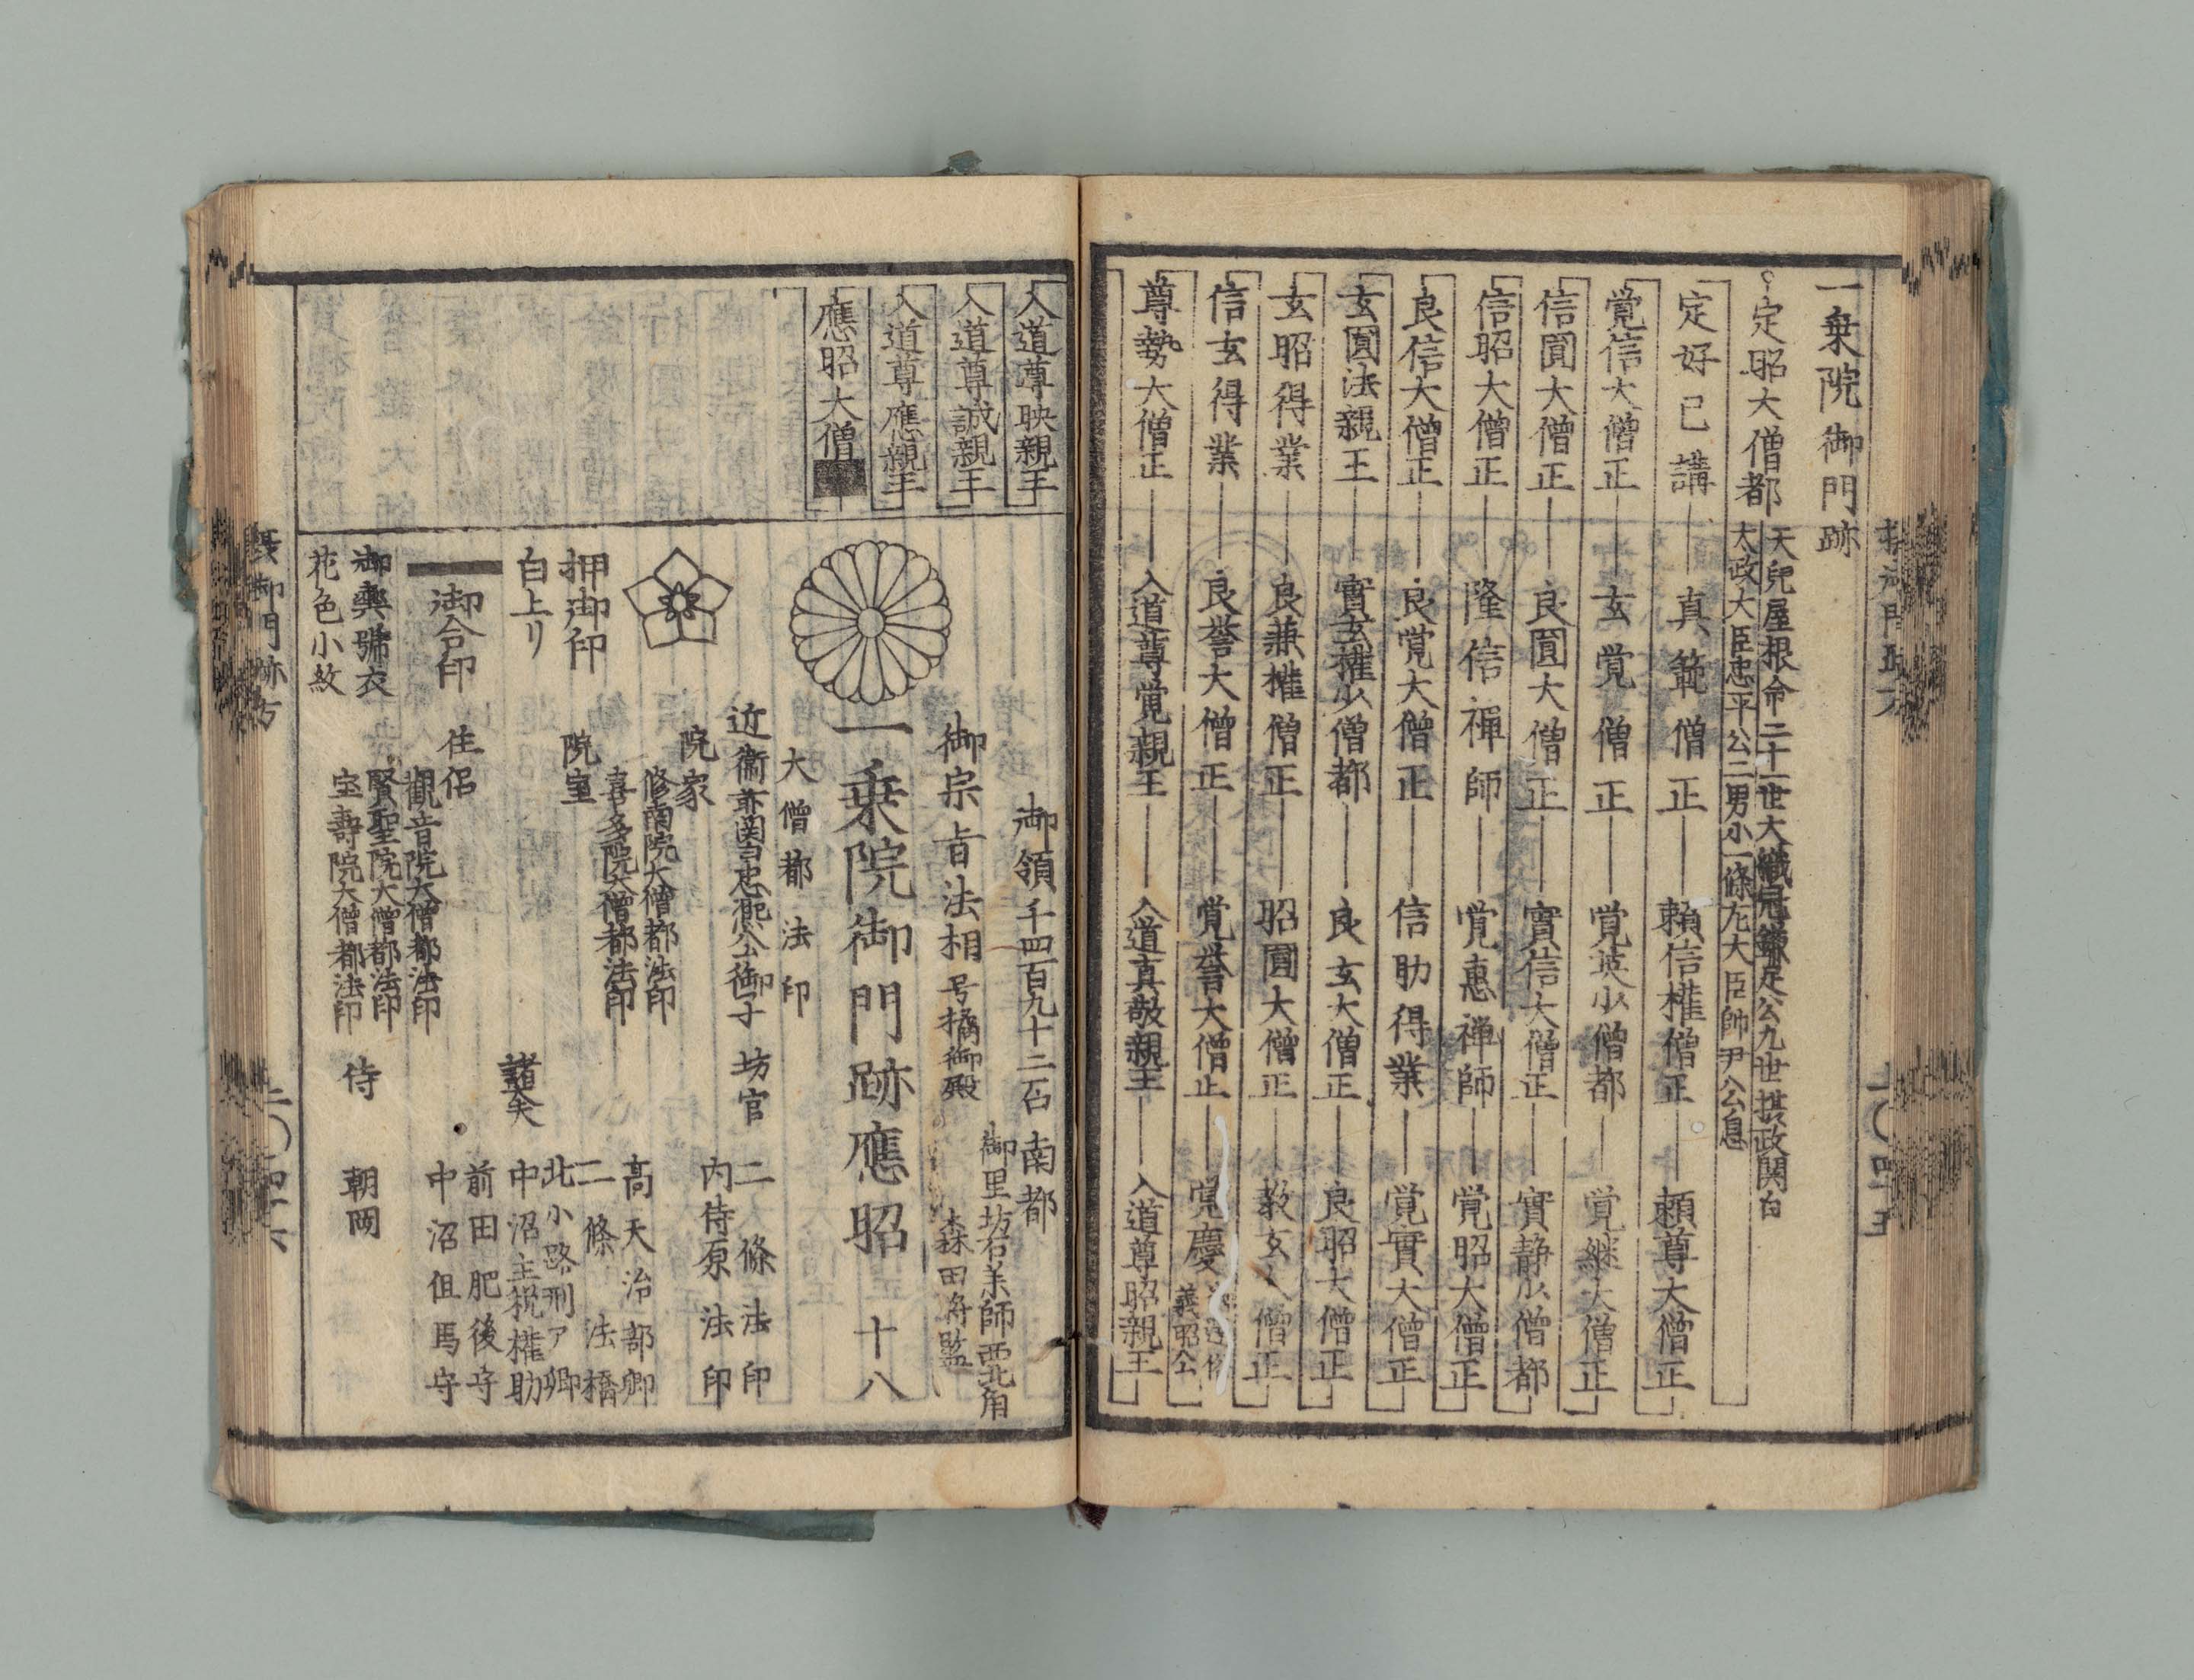 一乗院御門跡
定昭大僧都
天兒屋根命二十一世大織冠鎌足公九世摂政関白
太政大臣忠平公二男小一條左大臣師尹公息
定好已講 真範僧正 頼信権僧正 頼尊大僧正
覚信大僧正 玄覚僧正 覚英少僧都 覚継大僧正
信圓大僧正 良圓大僧正 實信大僧正 實静少僧都
信昭大僧正 隆信禅師 覚惠禅師 覚昭大僧正
良信大僧正 良覚大僧正 信助得業 覚實大僧正
玄圓法親王 實玄権少僧都 良玄大僧正 良昭大僧正
玄昭得業 良兼権僧正 昭圓大僧正 教玄大僧正
信玄得業 良誉大僧正 覚誉大僧正 覚慶
義昭公
尊勢大僧正 入道尊覚親王 入道真敬親王 入道尊昭親王
入道尊映親王
入道尊誠親王
入道尊應親王
應昭大僧
御領千四百九十二石 南都
御里坊石薬師西北角
御宗旨法相 号橘御殿 森田将監
一乗院御門跡應昭 十八
大僧都法印
近衛前関白忠熈公御子
坊官 二條法印
内侍原法印
院家
修南院大僧都法印
喜多院大僧都法印
院室
諸大夫
高天治部卿
二條法橋
北小路刑ア卿
中沼主税権助
前田肥後守
中沼但馬守
押御印
白上リ
御合印
住侶
観音院大僧都法印
賢聖院大僧都法印
宝壽院大僧都法印
侍 朝岡
御輿舁衣
花色小紋
摂御門跡方